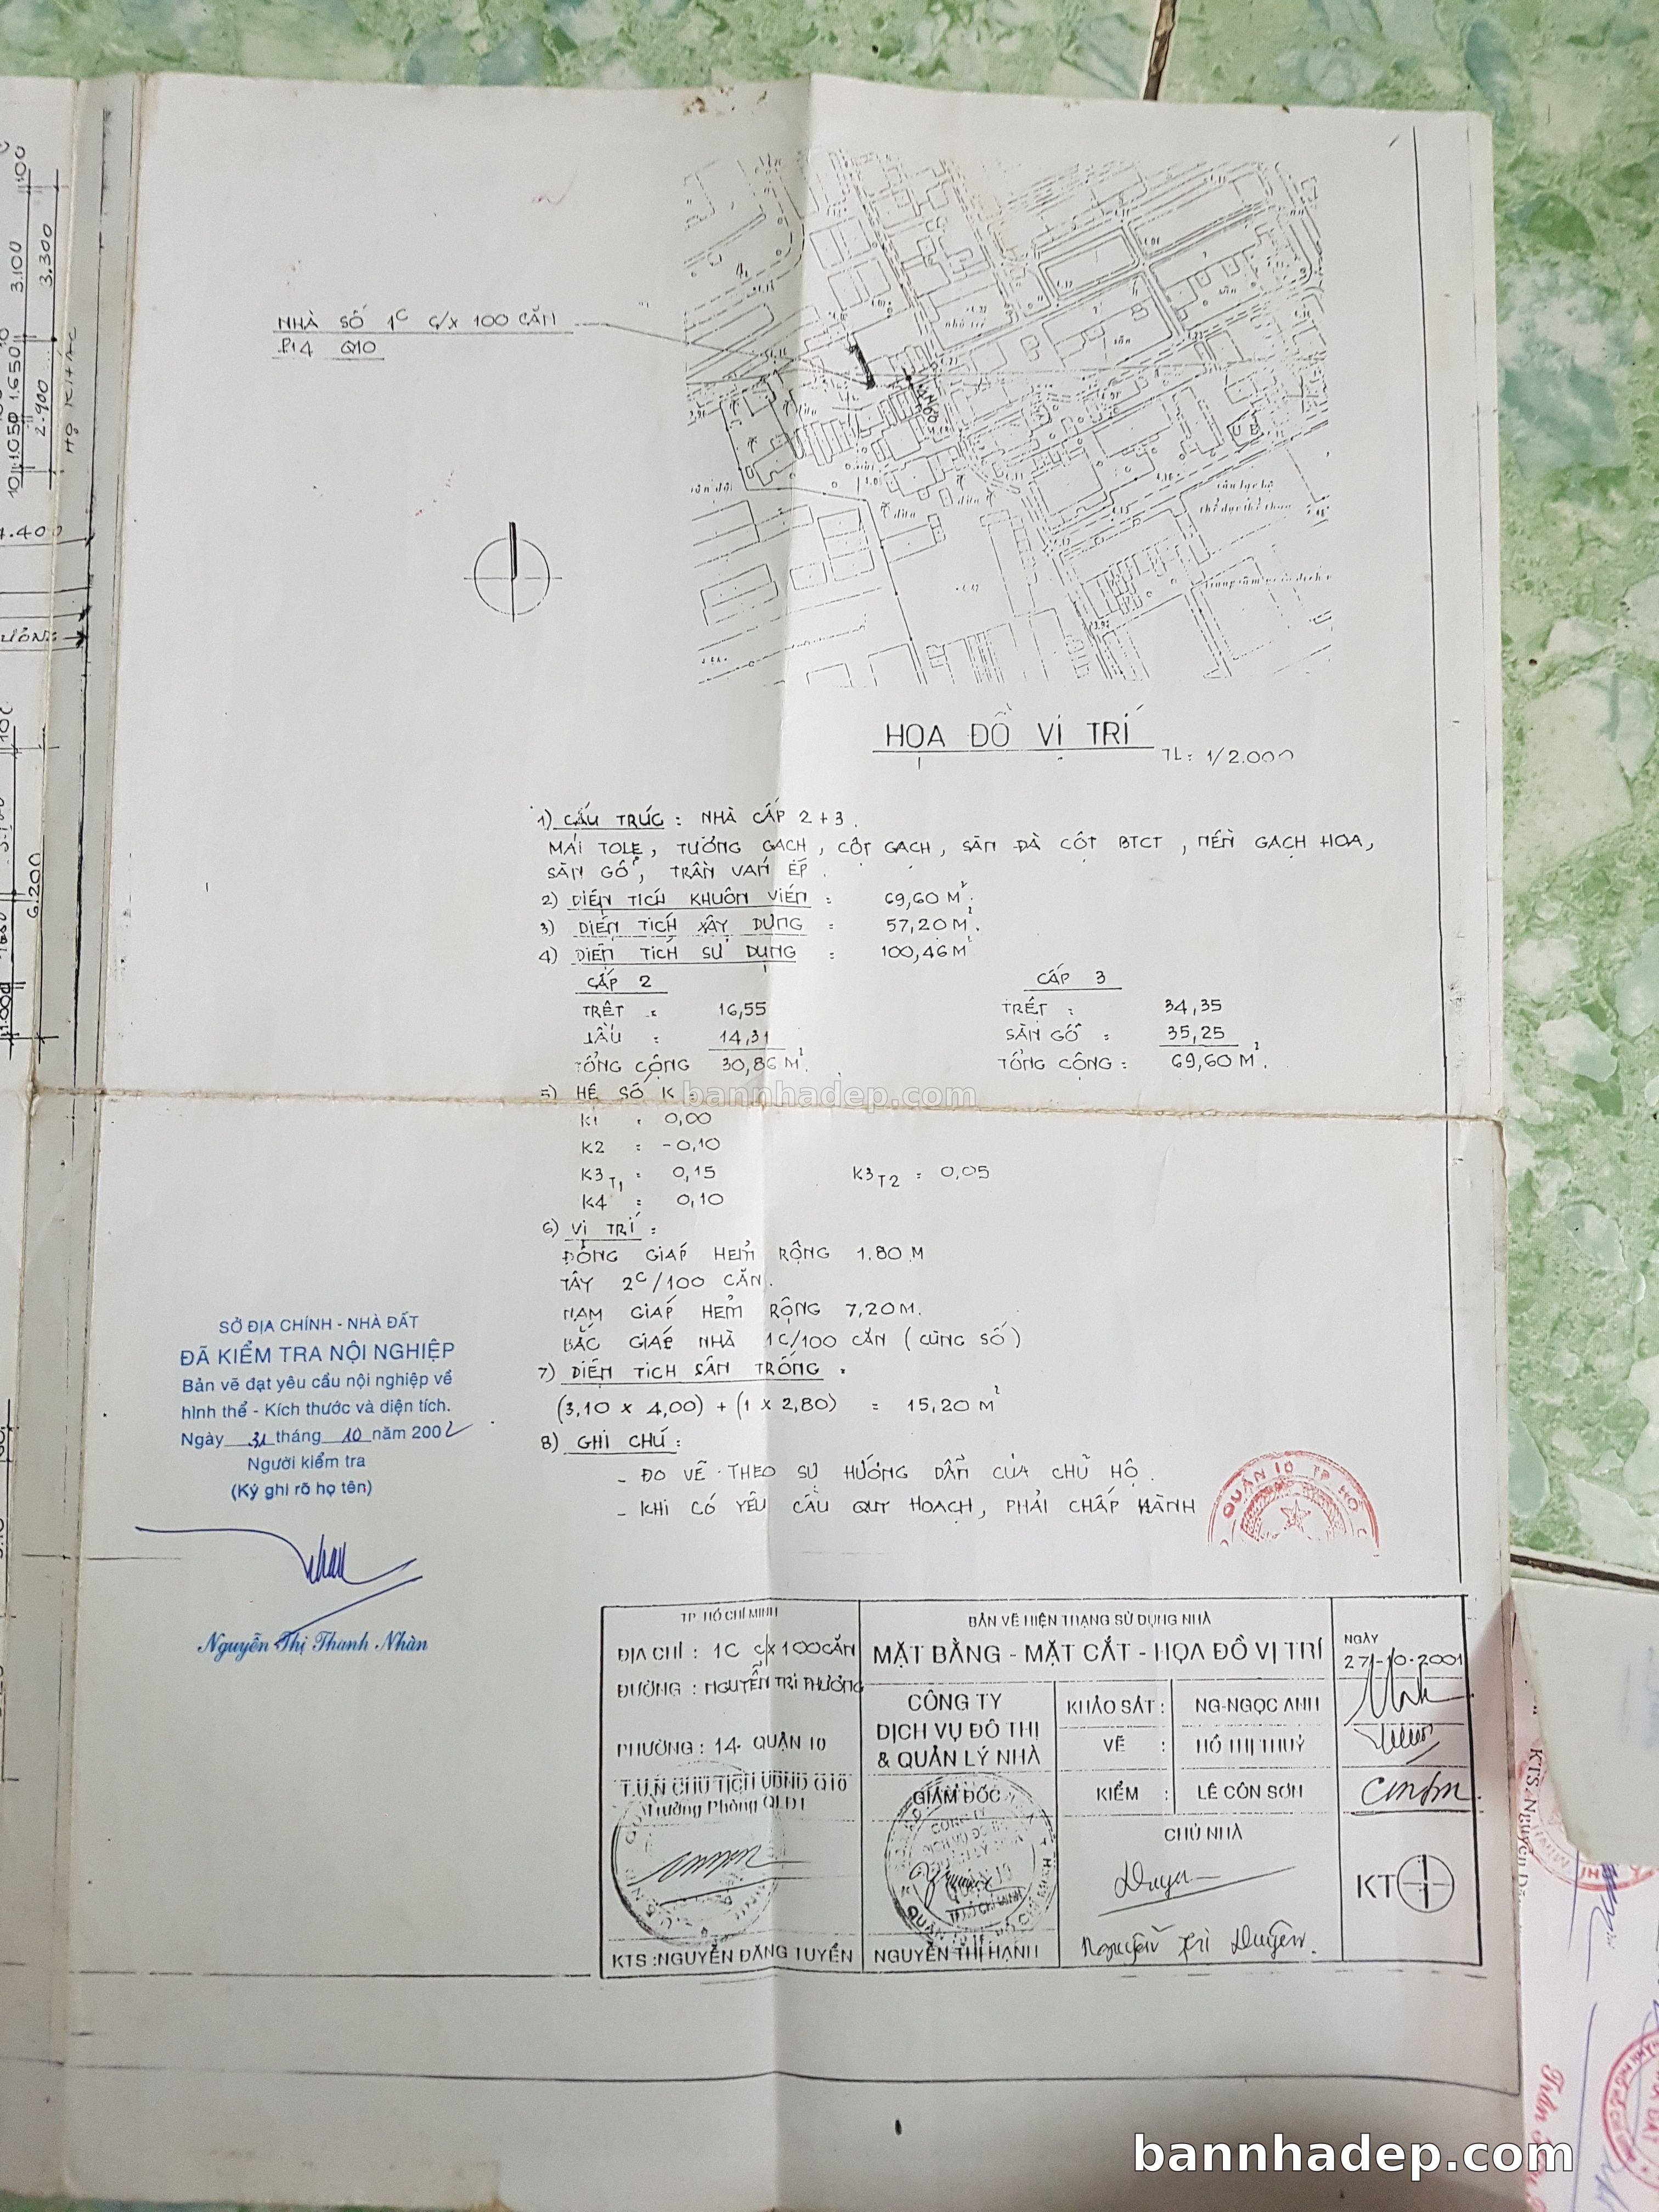 NHÀ SỐ 1C C/X 100 CĂN
P14 Q10
HỌA ĐỒ VỊ TRÍ
TL: 1/2.000
1) CẤU TRÚC : NHÀ CẤP 2 + 3 .
MÁI TOLE, TƯỜNG GẠCH, CỘT GẠCH, SÀN ĐÀ CỘT BTCT, NỀN GẠCH HOA,
SÀN GỖ, TRẦN VÁN ÉP .
2) DIỆN TÍCH KHUÔN VIÊN : 69,60 M².
3) DIỆN TÍCH XÂY DỰNG : 57,20 M².
4) DIỆN TÍCH SỬ DỤNG : 100,46 M²
CẤP 2 CẤP 3
TRỆT : 16,55 TRỆT : 34,35
LẦU : 14,31 SÀN GỖ : 35,25
TỔNG CỘNG 30,86 M². TỔNG CỘNG : 69,60 M².
5) HỆ SỐ K :
bannhadep.com
K1 : 0,00
K2 : -0,10
K3T1 : 0,15 K3T2 : 0,05
K4 : 0,10
6) VỊ TRÍ :
ĐÔNG GIÁP HẺM RỘNG 1.80 M
TÂY 2C/100 CĂN.
NAM GIÁP HẺM RỘNG 7,20 M.
BẮC GIÁP NHÀ 1C/100 CĂN (CÙNG SỐ)
7) DIỆN TÍCH SÂN TRỐNG :
(3,10 x 4,00) + (1 x 2,80) = 15,20 M²
8) GHI CHÚ :
- ĐO VẼ THEO SỰ HƯỚNG DẪN CỦA CHỦ HỘ .
- KHI CÓ YÊU CẦU QUY HOẠCH, PHẢI CHẤP HÀNH
QUẬN 10 TP HỒ C
SỞ ĐỊA CHÍNH - NHÀ ĐẤT
ĐÃ KIỂM TRA NỘI NGHIỆP
Bản vẽ đạt yêu cầu nội nghiệp về
hình thể - Kích thước và diện tích.
Ngày 31 tháng 10 năm 2002
Người kiểm tra
(Ký ghi rõ họ tên)
Nguyễn Thị Thanh Nhàn
TP HỒ CHÍ MINH
ĐỊA CHỈ : 1C CX 100 CĂN
ĐƯỜNG : NGUYỄN TRI PHƯƠNG
PHƯỜNG : 14. QUẬN 10
T.U.N CHỦ TỊCH UBND Q10
Trưởng Phòng QLĐT
KTS :NGUYỄN ĐĂNG TUYỂN
BẢN VẼ HIỆN TRẠNG SỬ DỤNG NHÀ
MẶT BẰNG - MẶT CẮT - HỌA ĐỒ VỊ TRÍ
CÔNG TY
DỊCH VỤ ĐÔ THỊ
& QUẢN LÝ NHÀ
GIÁM ĐỐC
NGUYỄN THỊ HẠNH
KHẢO SÁT : NG-NGỌC ANH
VẼ : HỒ THỊ THUỶ
KIỂM : LÊ CÔN SƠN
CHỦ NHÀ
Duyên
Nguyễn Thị Duyên.
NGÀY
27-10-2001
KT
3.100
3.300
100
1.650
2.900
1.050
6.200
HỘ KHÁC
KTS. Nguyễn
bannhadep.com